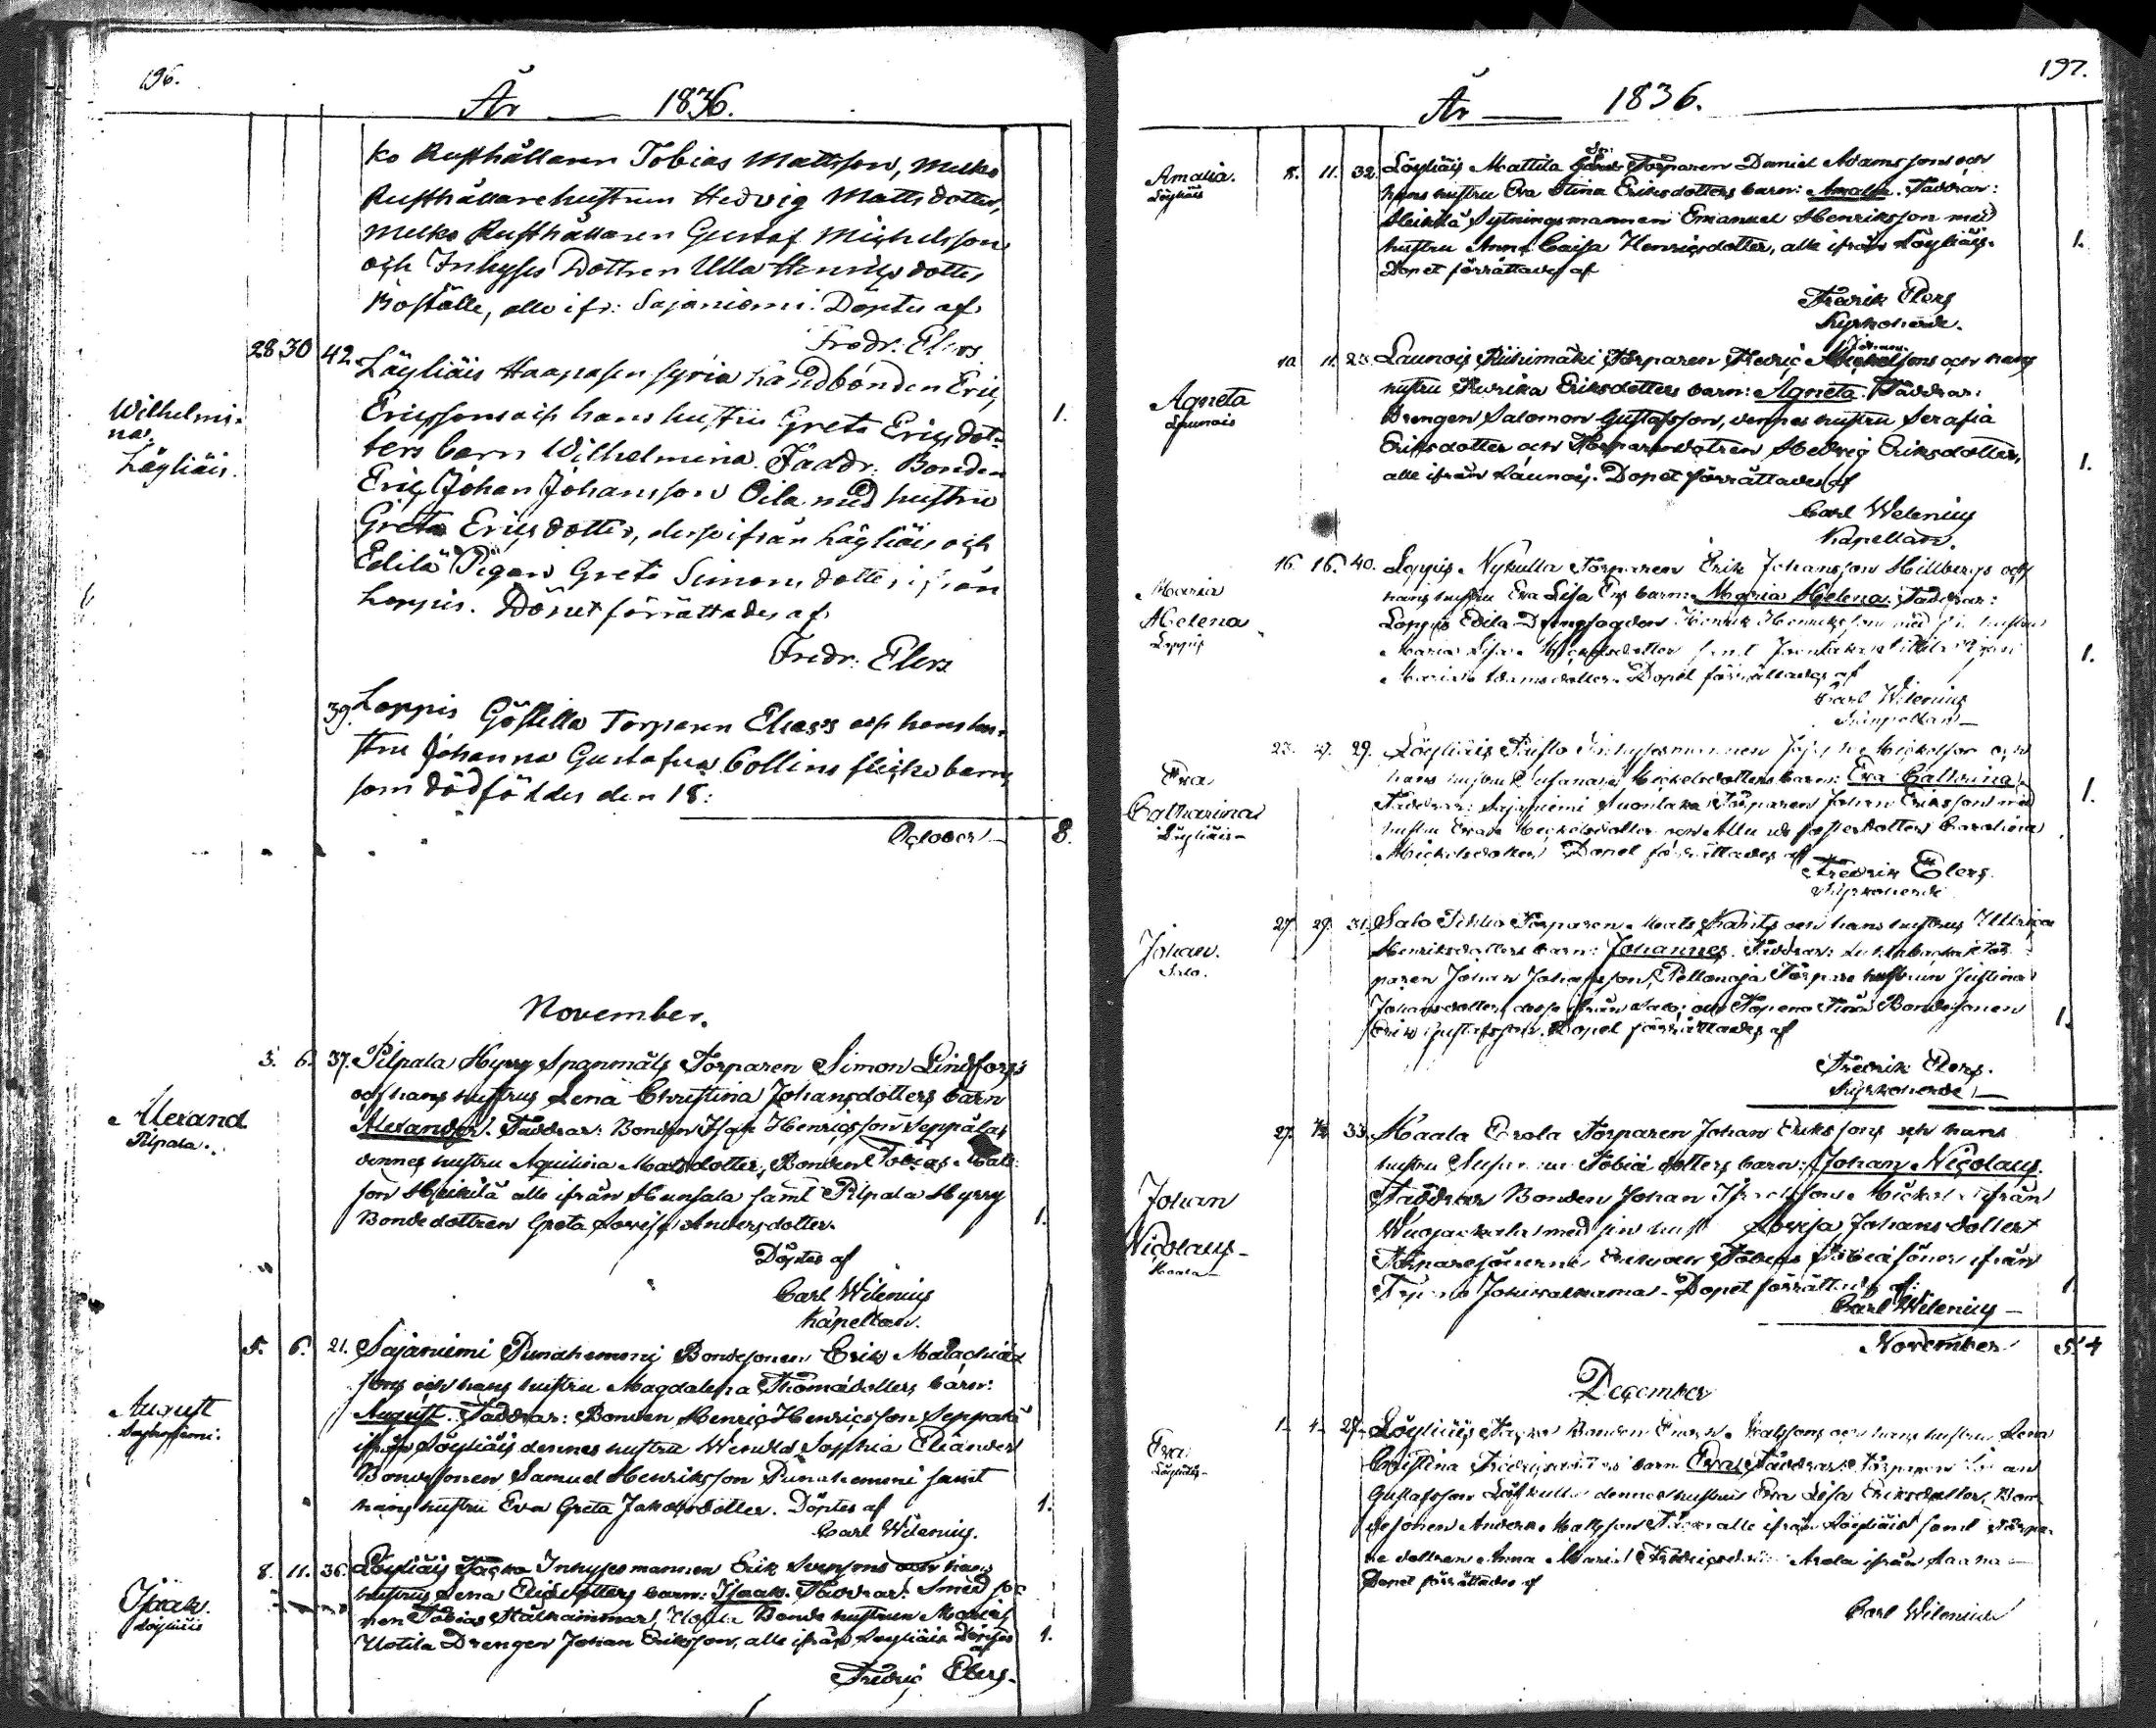 196.
År 1836.
ko Rusthållaren Tobias Mattsson, Melko
Rusthållarehustrun Hedvig Mattsdotter,
Melko Rusthållaren Gustaf Michelsson
och Inhyses Dottren Ulla Henricsdotter
Boställe, alla ifr: Sajaniemi. Döptes af
Fredr: Elers
Wilhelmi-
na.
Läyliäis.
28 30 42 Läyliäis Haapasensyria Landbonden Eric
Ericssons och hans hustru Greta Ericsdot-
ters barn Wilhelmina. Faddr. Bonden
Eric Johan Johansson Oila med hustru
Greta Ericsdotter, desse ifrån Läyliäis och
Edilä Pigan Greta Simonsdotter ifrån
Loppis. Döpet förrättades af
Fredr: Elers
1.
39. Loppis Göstilla Torparen Eliass och hans hu-
stru Johanna Gustafva Collins flickobarn,
som dödföddes den 18:
October 8.
November.
Alexand
Pilpala.
5. 6. 37. Pilpala Hyrry Spanmåls Torparen Simon Lindforss
och hans hustrus Lena Christina Johansdotters barn
Alexander. Faddrar: Bonden Isac Henricsson Seppälä,
dennes hustru Aquilina Matsdotter, Bonden Tobias Mats-
son Heikilä alla ifrån Hunsala samt Pilpala Hyrry
Bondedottren Greta Lovisa Andersdotter.
1.
Döptes af
Carl Wilenius
Kapellan.
August
Sajaniemi.
5. 6. 21. Sajaniemi Punahemmi Bondesonen Erik Malachias
sons och hans hustru Magdalena Thomædotters barn:
August. Faddrar: Bonden Henric Henricsson Seppälä
ifrån Löyliäis dennes hustru Wendla Sophia Elianders
Bondesonen Samuel Henriksson Punahemmi samt
hans hustru Eva Greta Jakobsdotter. Döptes af
1.
Carl Wilenius.
Isaak.
Löyliäis
8. 11. 36. Löyliäis Jacko Inhysesmannen Erik Svensons och hans
hustrus Lena Eliædotters barn: Isaak. Faddrar: Smedso-
nen Tobias Stålhammar, Uotila Bonde hustrun Maria
Uotila Drengen Johan Eriksson, alla ifrån Löyliäis Döptes
af
1.
Fredric Elers.
197.
År 1836.
Amalia.
Löyliäis
8. 11. 32. Löyliäis Mattila Torparen Daniel Adamssons och
hans hustru Eva Stina Eriksdotters barn: Amalia. Faddrar:
Heikkilä Sytningsmannen Emanuel Henriksson med
hustru Anna Caisa Henricsdotter, alla ifrån Löyliäis.
Dopet förrättades af
1.
Fredrik Elers
Kyrkoherde.
Agneta
Launois
10. 11. 23. Launois Riihimäki Torparen Fredric Johanssons och hans
hustru Fredrika Eriksdotters barn: Agneta. Faddrar:
Drengen Salomon Gustafsson, dennes hustru Serafia
Eriksdotter och Torparedottren Hedvig Eriksdotter,
alla ifrån Launois. Dopet förrättades af
1.
Carl Welenius
Kapellan.
Maria
Helena
Loppis
16. 16. 40. Loppis Nykulla Torparen Erik Johansson Hillbergs och
hans hustru Eva Lisa Ers barn: Maria Helena. Faddrar:
Loppis Edila Drengfogden Henrik Henriksson med sin hustru
Maria Lisa Michelsdotter samt
Maria Adamsdotter. Dopet förrättades af
1.
Carl Wilenius
Kapellan
Eva
Catharina
Löyliäis
23. 27. 29. Löyliäis Inhysesmannen Mickelson och
hans hustru Susanna Mickelsdotters barn: Eva Catharina.
Faddrar: Sajaniemi Suontaka Torparen Johan Eriksson med
hustru Eva Mickelsdotter och Carolina
Mickelsdotter Dopet förrättades af
1.
Fredrik Elers.
Kyrkoherde
Johan.
Salo.
27. 29. 31. Salo Torparen Mats och hans hustrus Ulrica
Henriksdotters barn: Johannes. Faddrar: Tor-
paren Johan Johansson, Pellonoja Torpare hustrun Justina
Johansdotter, desse ifrån Salo, och Topeno Bondesonen
Erik Gustafsson. Dopet förrättades af
1.
Fredrik Elers.
Kyrkoherde
Johan
Nicolaus
Kaala
27. 33. Kaala Erola Torparen Johan Erikssons och hans
hustru Tobiædotters barn: Johan Nicolaus.
Faddrar Bonden Johan ifrån
med sin hust Lovisa Johansdotter
Torparesönerne Tobiæsöner ifrån
Dopet förrättades af
1
Carl Wilenius
November 5. 4
December
Eva
Löyliäis
1. 4. 27. Löyliäis Bonden Matssons och hans hustru Lena
Christina Fredricsdotters barn Eva. Faddrar: Torparen Johan
Gustafsson dennes hustru Eva Lisa Eriksdotter, Bon-
desonen Anders Matsson alla ifrån Löyliäis samt Torpa-
re dottren Anna Maria Fredricsdotter Arola ifrån
Dopet förrättades af
Carl Wilenius